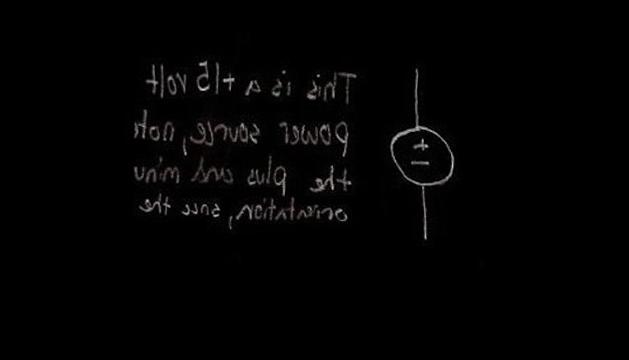 This is a +15 volt
power source, note
the plus and minu
orientation, since the
+
−